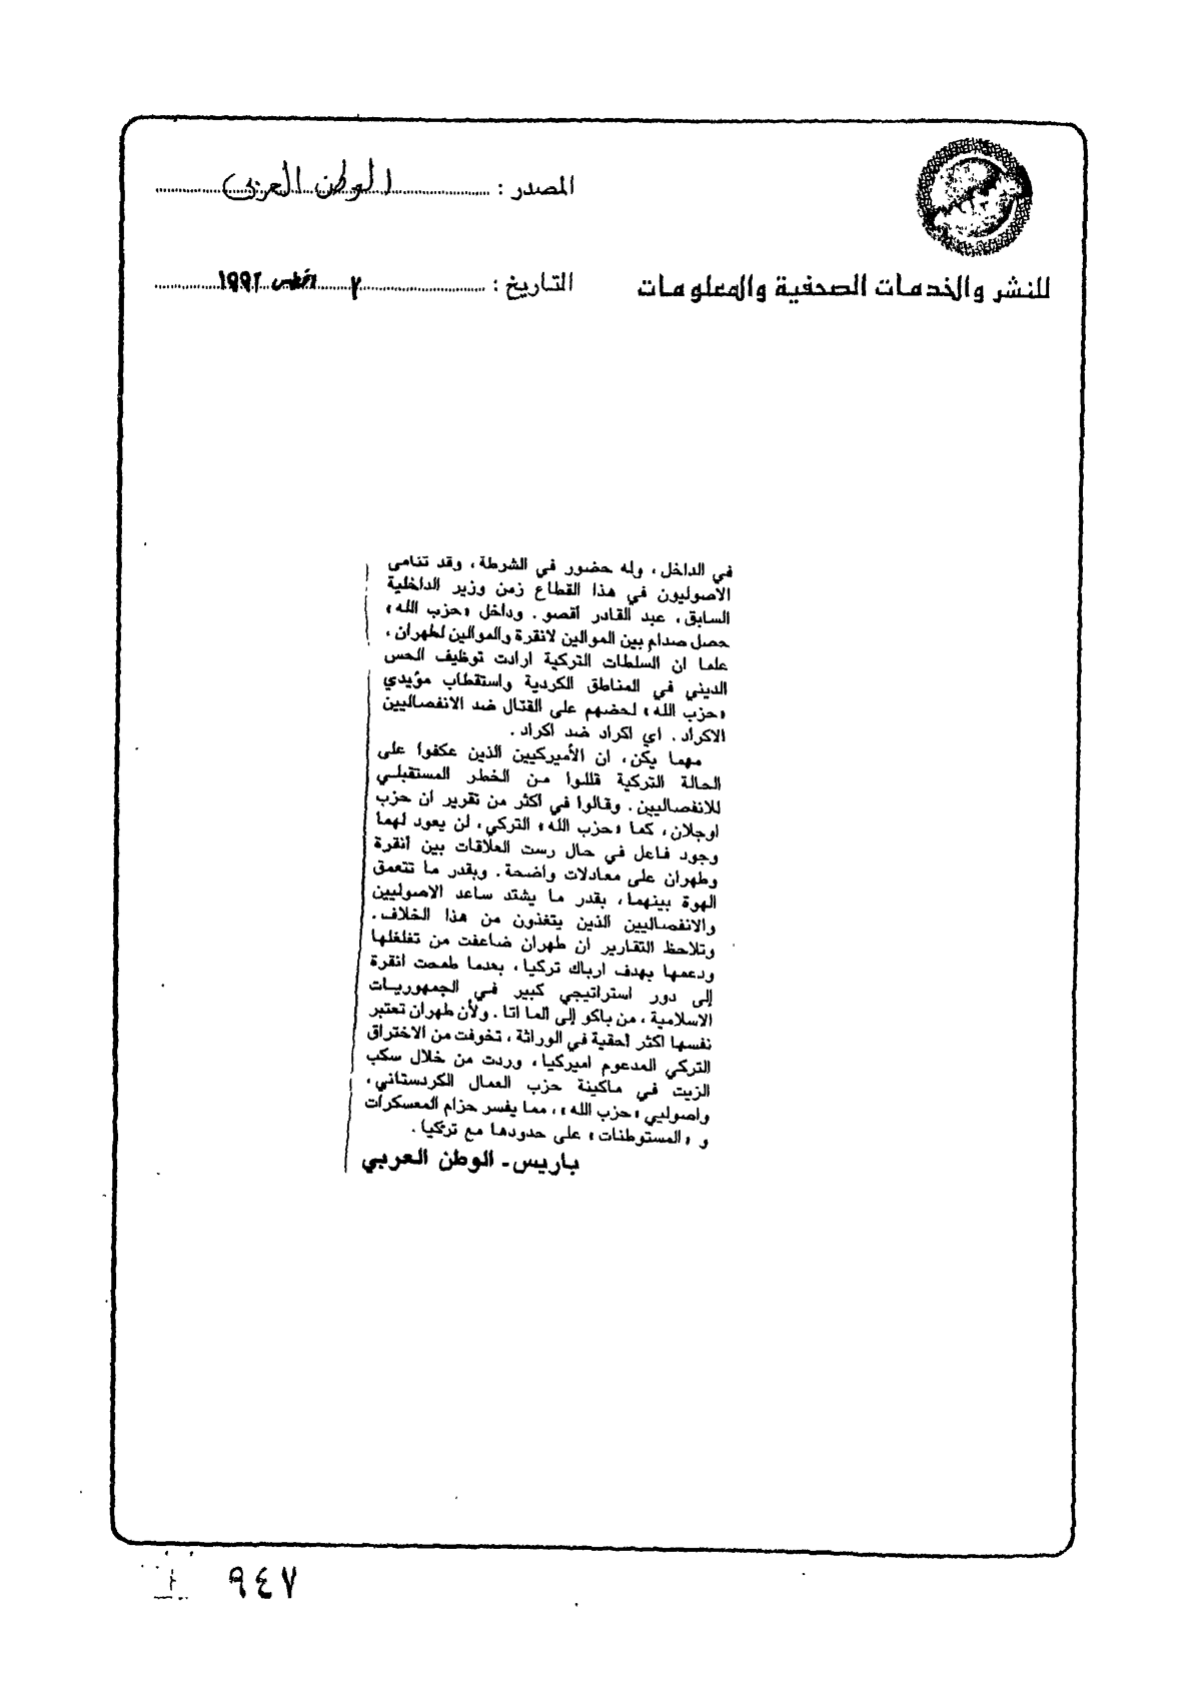 المصدر : الوطن العربي
للنشر والخدمات الصحفية والمعلومات
التاريخ : ٧ اغسطس ١٩٩٢
في الداخل، وله حضور في الشرطة، وقد تنامى
الاصوليون في هذا القطاع زمن وزير الداخلية
السابق، عبد القادر أقصو. وداخل «حزب الله»
حصل صدام بين الموالين لانقرة والموالين لطهران،
علما ان السلطات التركية ارادت توظيف الحس
الديني في المناطق الكردية واستقطاب مؤيدي
«حزب الله» لحضهم على القتال ضد الانفصاليين
الاكراد. اي اكراد ضد اكراد.
مهما يكن، ان الأميركيين الذين عكفوا على
الحالة التركية قللوا من الخطر المستقبلي
للانفصاليين. وقالوا في اكثر من تقرير ان حزب
اوجلان، كما «حزب الله» التركي، لن يعود لهما
وجود فاعل في حال رست العلاقات بين أنقرة
وطهران على معادلات واضحة. وبقدر ما تتعمق
الهوة بينهما، بقدر ما يشتد ساعد الاصوليين
والانفصاليين الذين يتغذون من هذا الخلاف.
وتلاحظ التقارير ان طهران ضاعفت من تغلغلها
ودعمها بهدف ارباك تركيا، بعدما طمحت انقرة
إلى دور استراتيجي كبير في الجمهوريات
الاسلامية، من باكو إلى الما اتا. ولأن طهران تعتبر
نفسها اكثر أحقية في الوراثة، تخوفت من الاختراق
التركي المدعوم اميركيا، وردت من خلال سكب
الزيت في ماكينة حزب العمال الكردستاني،
واصوليي «حزب الله»، مما يفسر حزام المعسكرات
و «المستوطنات» على حدودها مع تركيا.
باريس - الوطن العربي
٩٤٧